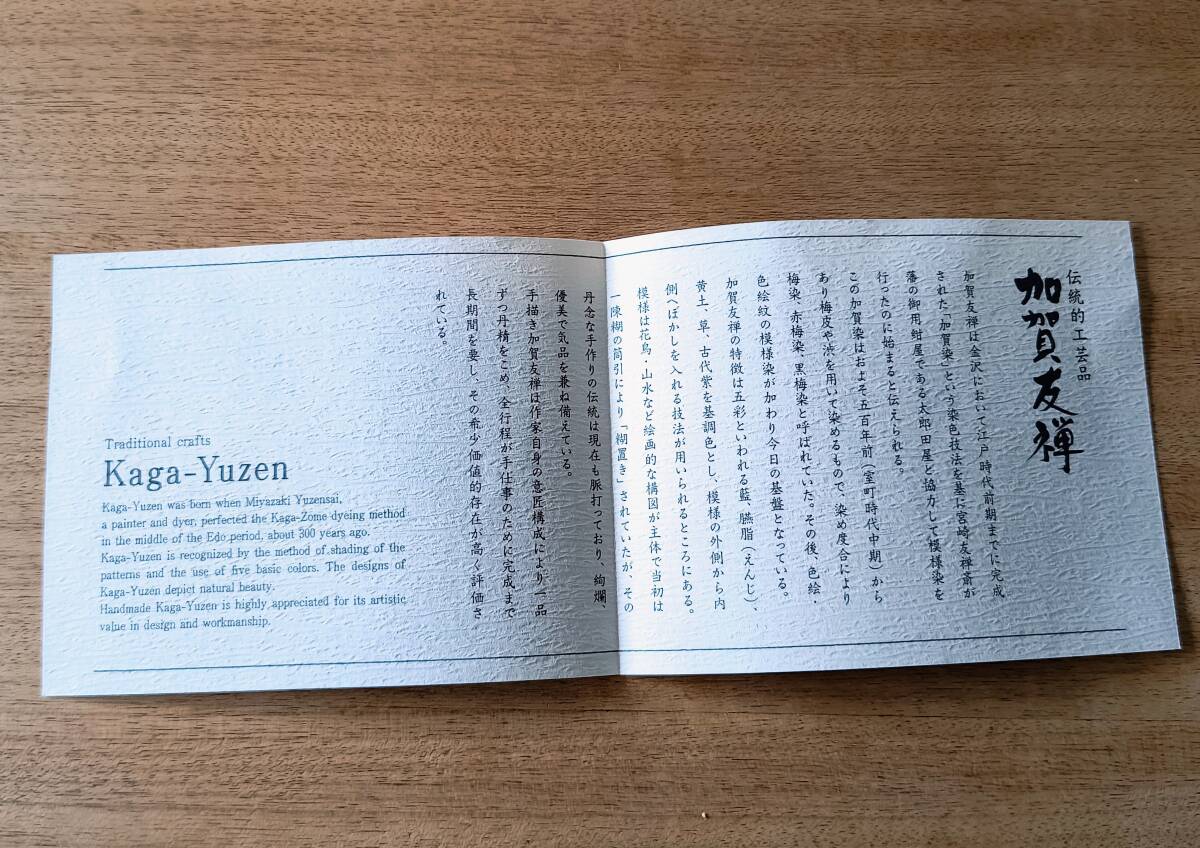 伝統的工芸品
加賀友禅
加賀友禅は金沢において江戸時代前期までに完成
された「加賀染」という染色技法を基に宮崎友禅斎が
藩の御用紺屋である太郎田屋と協力して模様染を
行ったのに始まると伝えられる。
この加賀染はおよそ五百年前（室町時代中期）から
あり梅皮や渋を用いて染めるもので、染め度合により
梅染、赤梅染、黒梅染と呼ばれていた。その後、色絵・
色絵紋の模様染が加わり今日の基盤となっている。
加賀友禅の特徴は五彩といわれる藍、臙脂（えんじ）、
黄土、草、古代紫を基調色とし、模様の外側から内
側へぼかしを入れる技法が用いられるところにある。
模様は花鳥・山水など絵画的な構図が主体で当初は
一陳糊の筒引により「糊置き」されていたが、その
丹念な手作りの伝統は現在も脈打っており、絢爛、
優美で気品を兼ね備えている。
手描き加賀友禅は作家自身の意匠構成により一品
ずつ丹精をこめ、全行程が手仕事のために完成まで
長期間を要し、その希少価値的存在が高く評価さ
れている。
Traditional crafts
Kaga-Yuzen
Kaga-Yuzen was born when Miyazaki Yuzensai,
a painter and dyer, perfected the Kaga-Zome dyeing method
in the middle of the Edo period, about 300 years ago.
Kaga-Yuzen is recognized by the method of shading of the
patterns and the use of five basic colors. The designs of
Kaga-Yuzen depict natural beauty.
Handmade Kaga-Yuzen is highly appreciated for its artistic
value in design and workmanship.